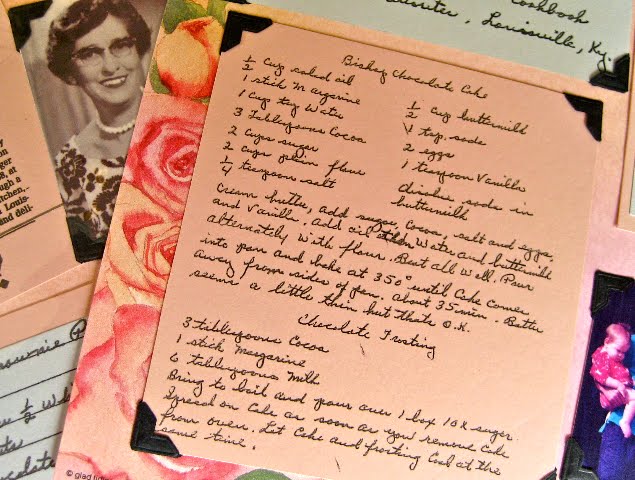 Cookbook
Louisville, Ky.
Bishop Chocolate Cake
1/2 cup salad oil
1 stick Margarine
1 cup tap water
3 Tablespoons Cocoa
2 cups sugar
2 cups plain flour
1/4 teaspoon salt
1/2 cup buttermilk
1 tsp. soda
2 eggs
1 teaspoon Vanilla
dissolve soda in
buttermilk
Cream butter, add sugar, cocoa, salt and eggs,
and Vanilla. Add oil, Water and buttermilk
alternately with flour. Beat all well. Pour
into pan and bake at 350° until Cake comes
away from sides of pan. about 35 min. Batter
seems a little thin but thats O.K.
Chocolate Frosting
3 tablespoons Cocoa
1 stick Margarine
6 tablespoons Milk
Bring to boil and pour over 1 box 10X sugar.
Spread on Cake as soon as you remove Cake
from oven. Let Cake and frosting Cool at the
same time.
ger
8, at
ough a
tchen,
Louis-
and deli-
Brownie
1/2
© glad